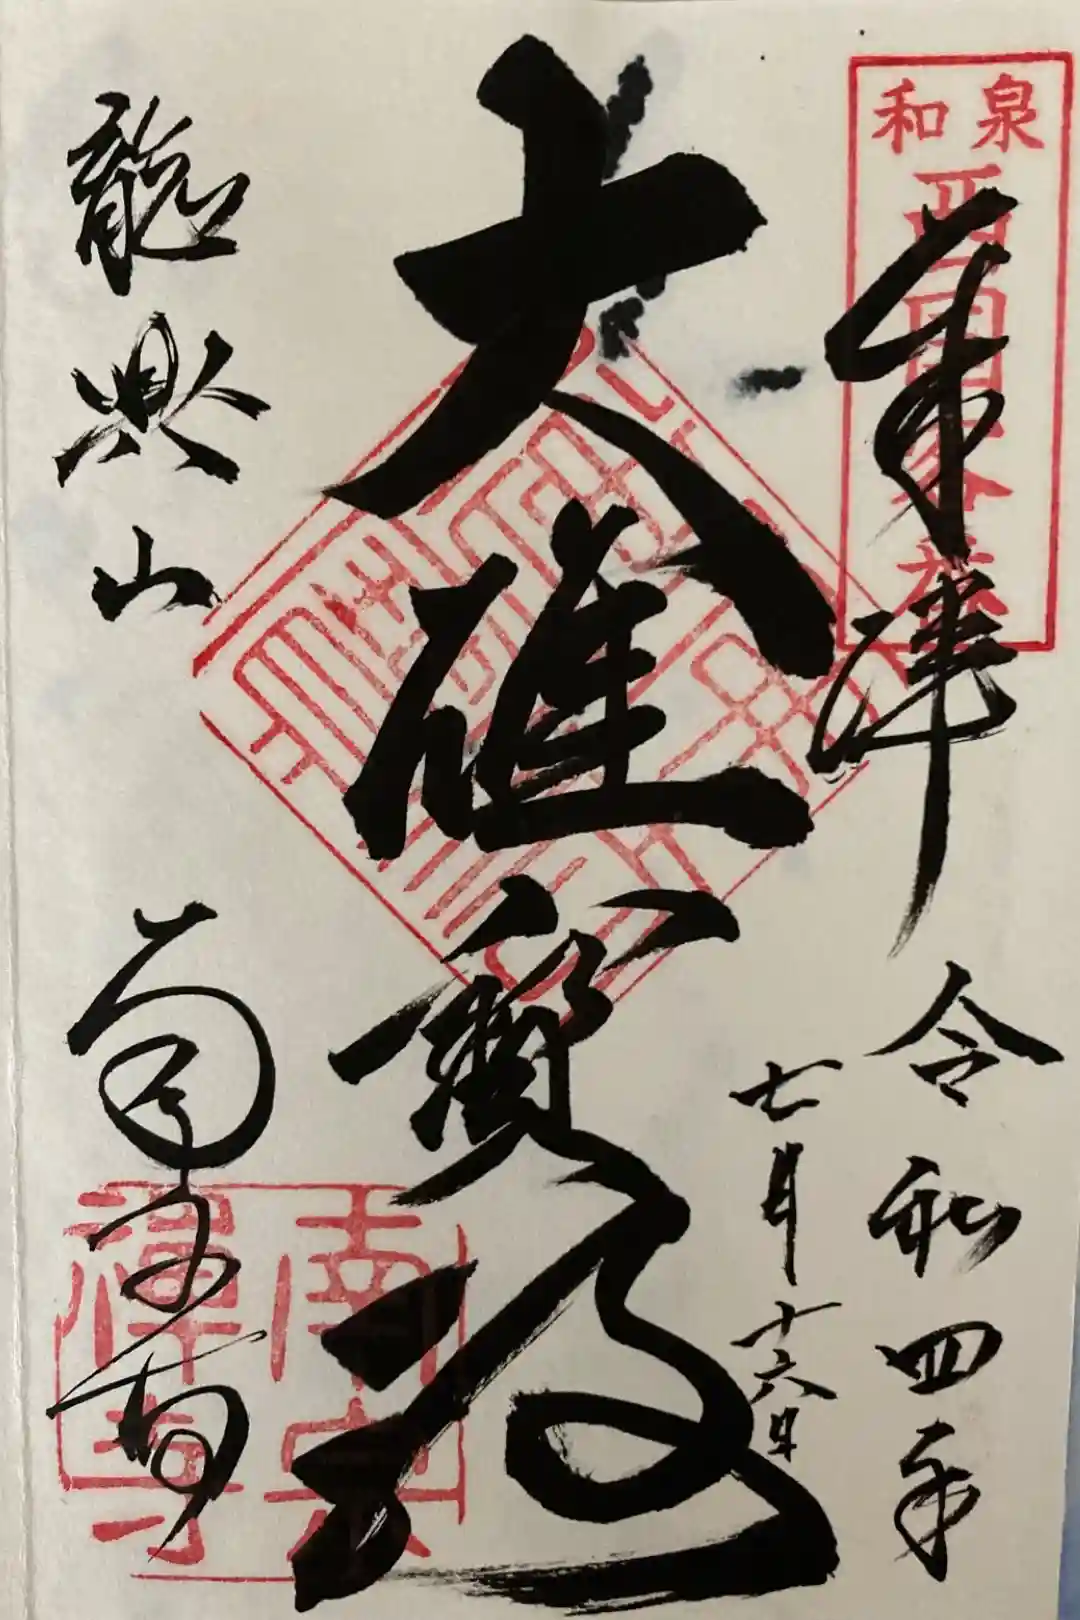 和泉
西国
奉拝
令和四年
七月十六日
大雄寶殿
龍興山
南宗寺
南宗
禪寺